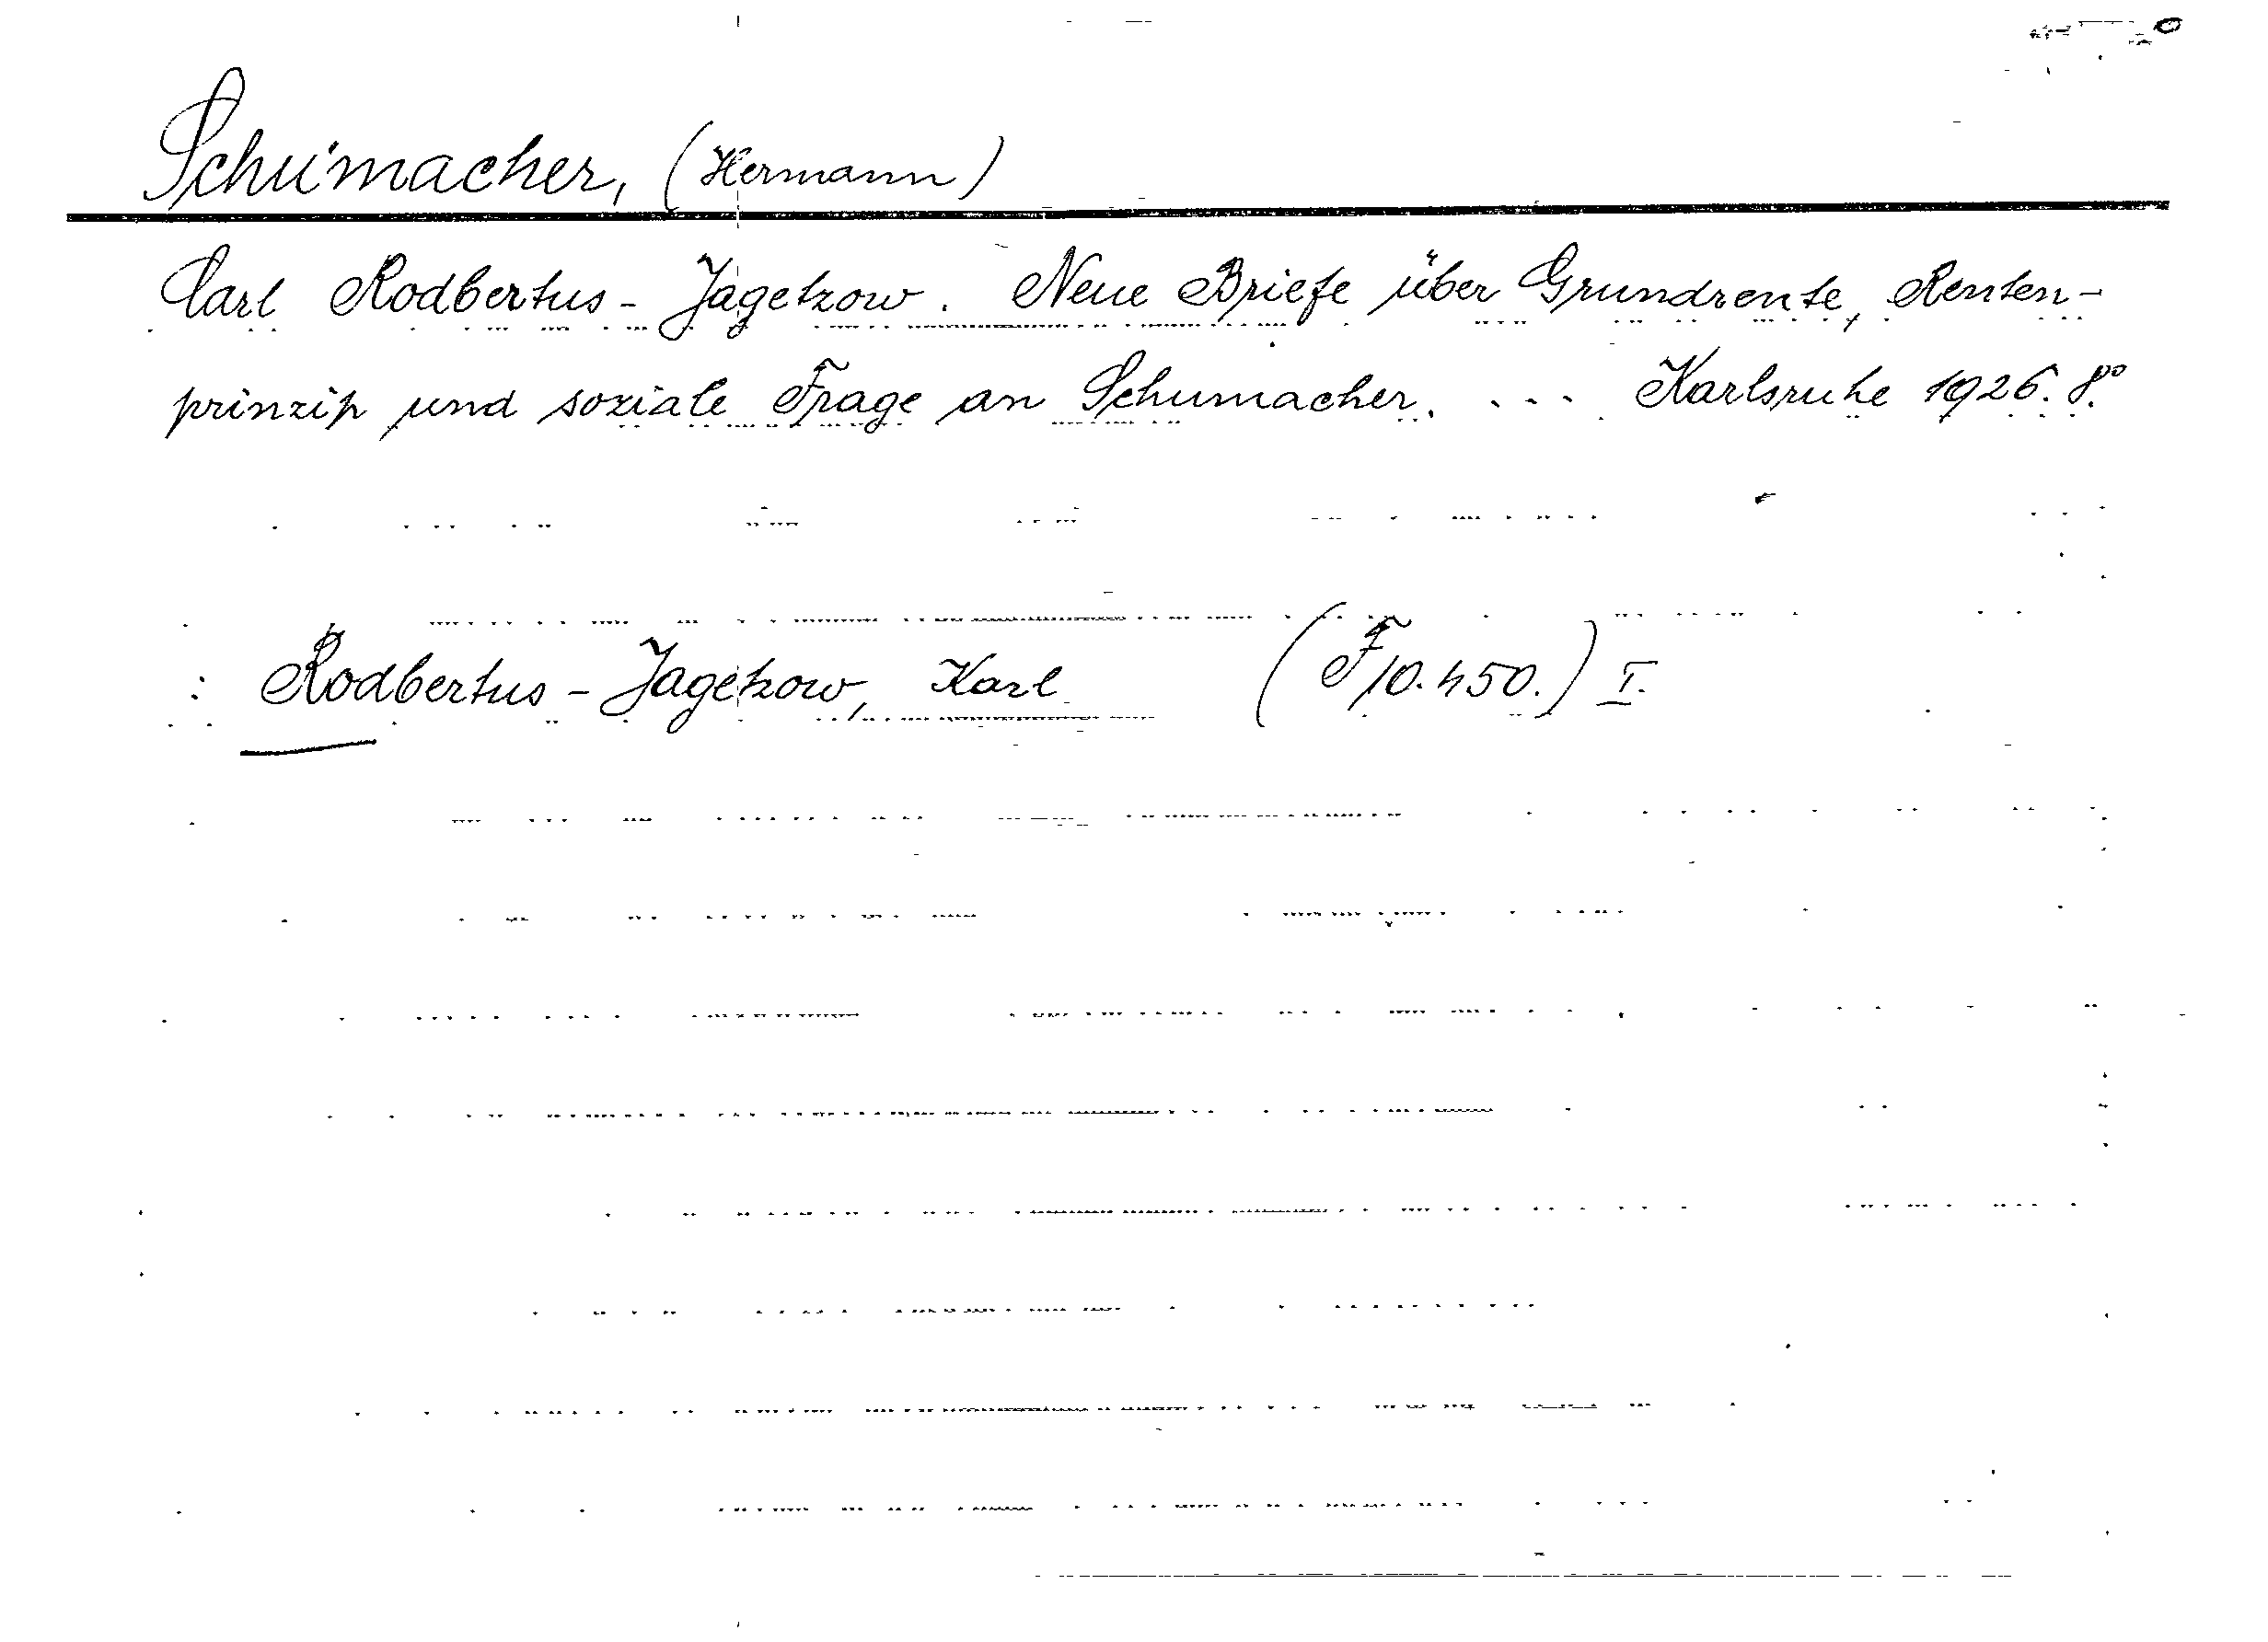 Schumacher, (Hermann)
Carl Rodbertus-Jagetzow. Neue Briefe über Grundrente, Renten-
prinzip und soziale Frage an Schumacher. ... Karlsruhe 1926. 8°
: Rodbertus-Jagetzow, Karl (F 10.450.) I.